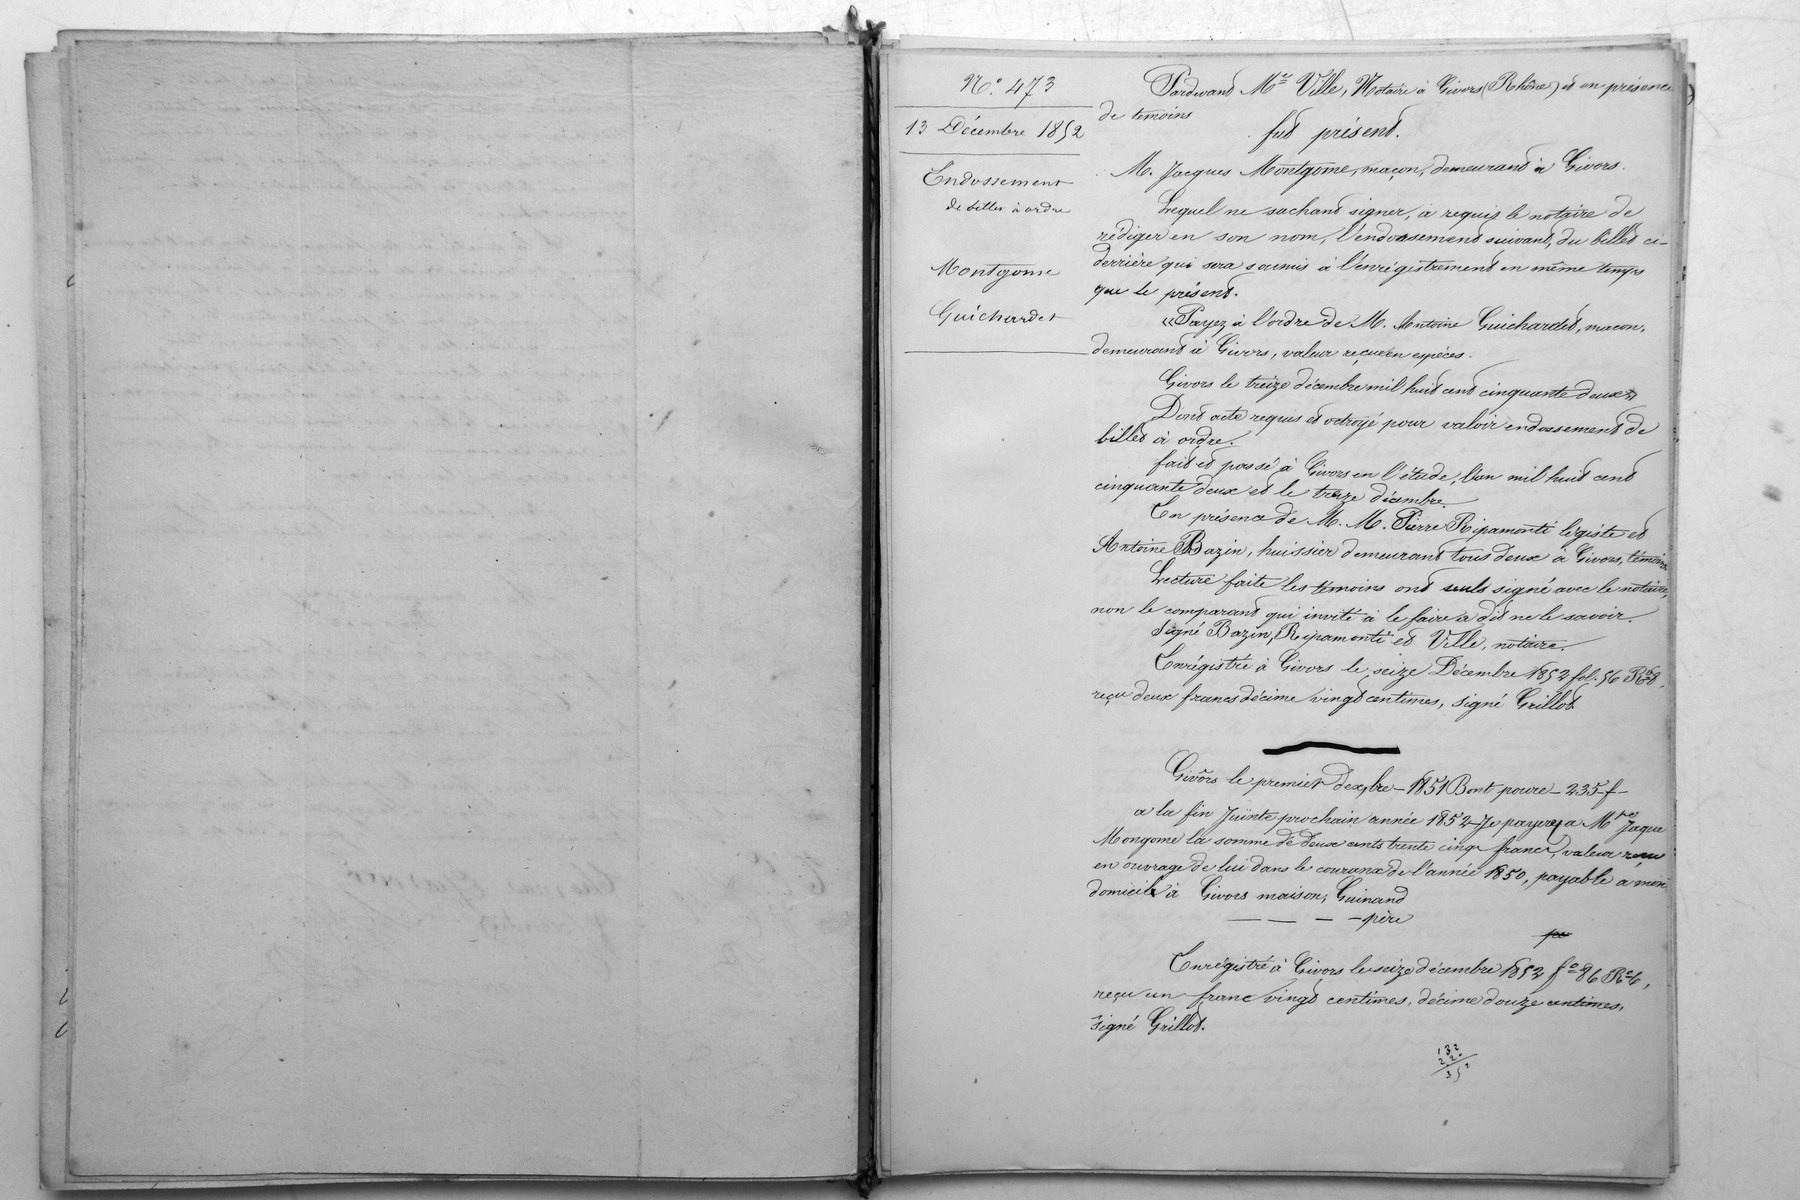 N.° 473
13 Décembre 1852
Endossement
de billet à ordre
Montgome
Guichardet
Pardevant Me Ville, Notaire à Givors (Rhône) et en présence
de temoins
fut présent.
M. Jacques Montgome, maçon, demeurant à Givors.
Lequel ne sachant signer, a requis le notaire de
rédiger en son nom, l'endossement suivant, du billet ci-
derrière qui sera soumis à l'enrégistrement en même temps
que le présent.
«Payez à l'ordre de M. Antoine Guichardet, macon,
demeurant à Givors, valeur reçue en espèces.
Givors le treize décembre mil huit cent cinquante deux»
Dont acte requis et octroyé pour valoir endossement de
billet à ordre.
fait et passé à Givors en l'étude, l'an mil huit cent
cinquante deux et le treize décembre.
En présence de M. M. Pierre Ripamonti légiste et
Antoine Bazin, huissier demeurant tous deux à Givors, témoins
Lecture faite les témoins ont seuls signé avec le notaire,
non le comparant qui invité à le faire a dit ne le savoir.
Signé Bazin, Ripamonti et Ville, notaire.
Enrégistré à Givors le seize Décembre 1852 fol. 56
reçu deux francs décime vingt centimes, signé Grillot
Givors le premier dexbre - 1851 Bont poure - 235 f -
a la fin Juinte prochain année 1852 Je payerez a Mtre Jaque
Mongome la somme de deux cents trente cinq francs, valeur reçu
en ouvrage de lui dans le courant de l'année 1850, payable à mon
domicile à Givors maison, Guinand
père
Enrégistré à Givors le seize décembre 1852 fo 86 Ro 6,
reçu un franc vingt centimes, décime douze centimes,
signé Grillot.
132
220
352